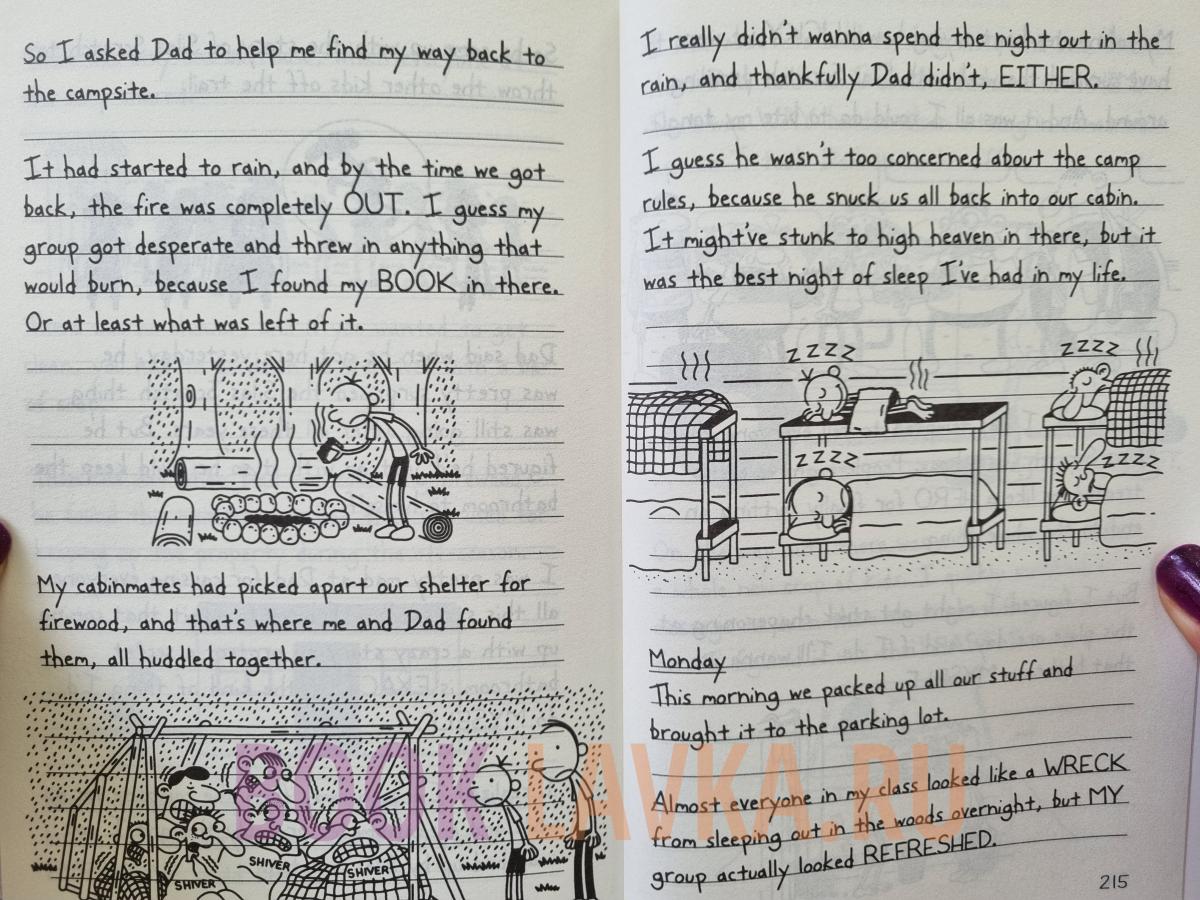 So I asked Dad to help me find my way back to
the campsite.
It had started to rain, and by the time we got
back, the fire was completely OUT. I guess my
group got desperate and threw in anything that
would burn, because I found my BOOK in there.
Or at least what was left of it.
My cabinmates had picked apart our shelter for
firewood, and that's where me and Dad found
them, all huddled together.
SHIVER
SHIVER
SHIVER
I really didn't wanna spend the night out in the
rain, and thankfully Dad didn't, EITHER.
I guess he wasn't too concerned about the camp
rules, because he snuck us all back into our cabin.
It might've stunk to high heaven in there, but it
was the best night of sleep I've had in my life.
ZZZZ
ZZZZ
ZZZZ
ZZZZ
Monday
This morning we packed up all our stuff and
brought it to the parking lot.
Almost everyone in my class looked like a WRECK
from sleeping out in the woods overnight, but MY
group actually looked REFRESHED.
215
BOOK LAVKA.RU